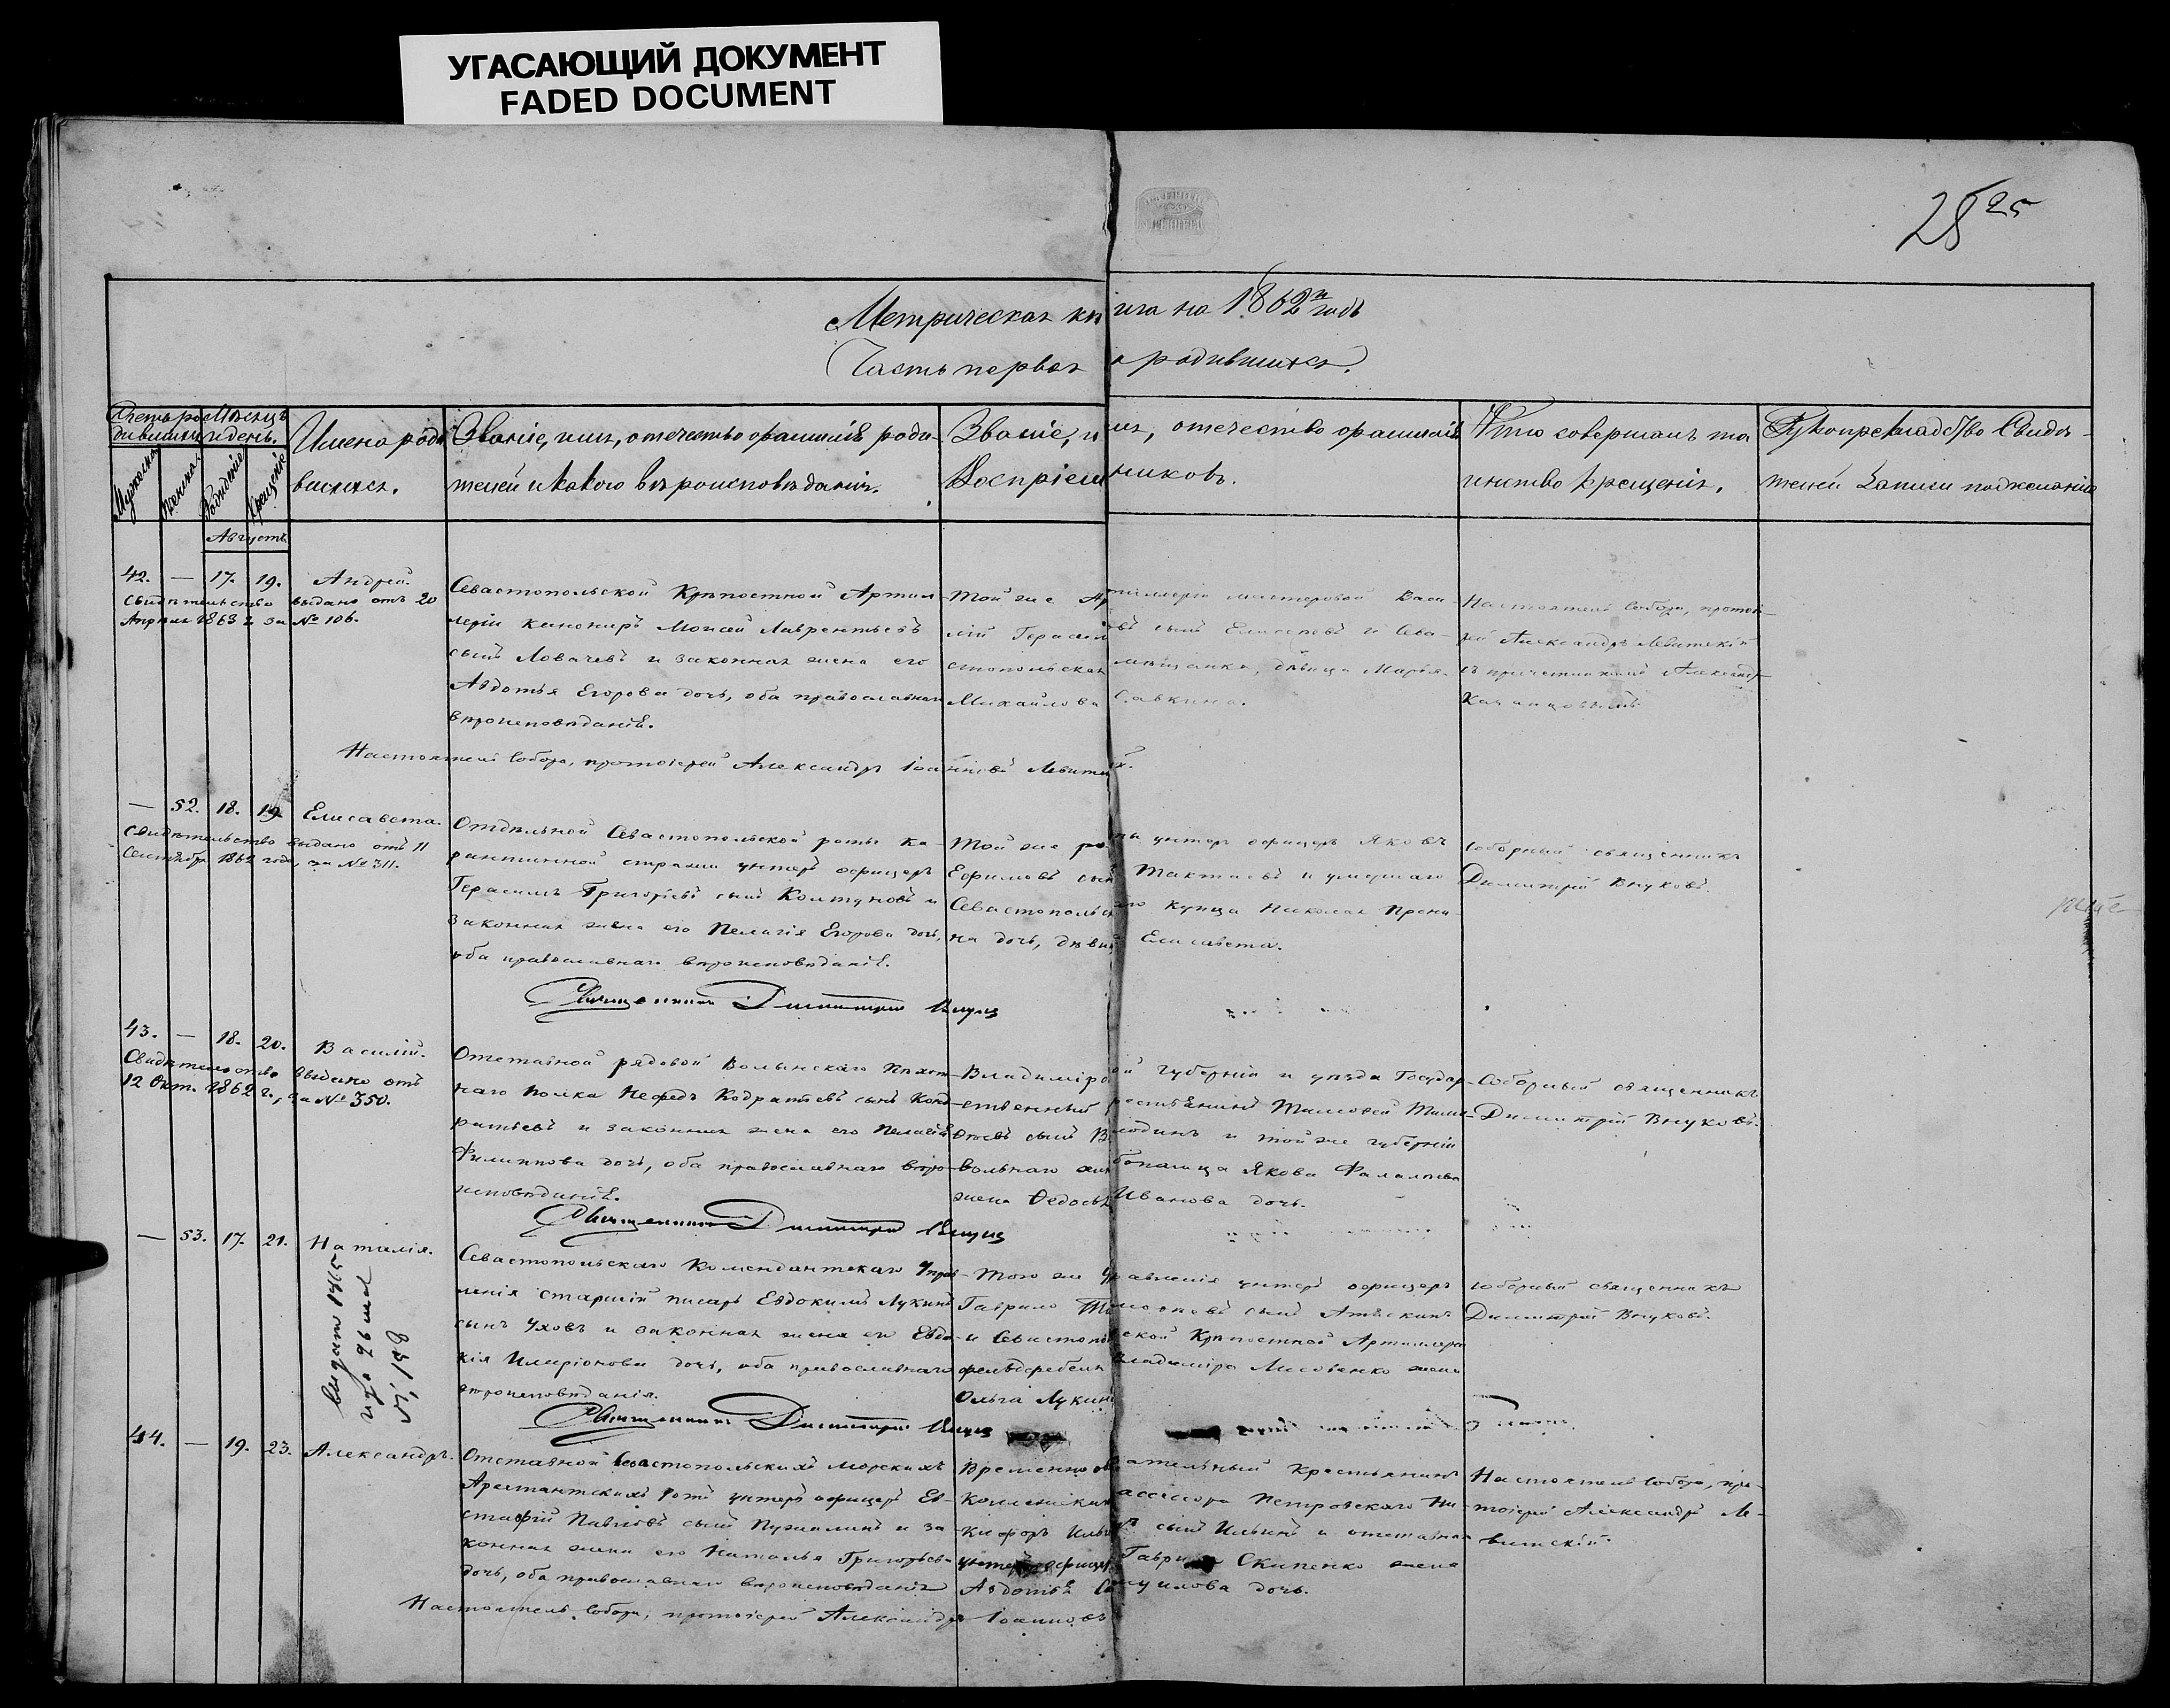 УГАСАЮЩИЙ ДОКУМЕНТ
FADED DOCUMENT
25
Метрическая книга на 1862й годъ
Часть первая о родившихся.
Счетъ родившихся
Мѣсяцъ и день.
Мужеска
Женска
Рожденiе
Крещенiе
Имена родившихся.
Званiе, имя, отечество фамилiя родителей и какого вѣроисповѣданiя.
Званiе, имя, отечество фамилiя
Воспрiемниковъ.
Кто совершалъ таинство крещенiя.
Рукоприкладство Свидѣтелей записи по желанiю
Августъ
42. — 17. 19. Андрей.
Свидѣтельство выдано отъ 20
Апрѣля 1863 г. за № 106.
Севастопольской Крѣпостной Артиллерiи канониръ Моисей Лаврентьевъ
сынъ Ловачевъ и законная жена его
Авдотья Егорова дочь, оба православнаго
вѣроисповѣданiя.
Той же Артиллерiи мастеровой Василiй Герасимовъ сынъ и Севастопольская мѣщанка, дѣвица Марья
Михайлова Савкина.
Настоятель Собора, протоiерей Александръ Левитскiй
съ причетникомъ
Настоятель Собора, протоiерей Александръ Iоанновъ Левитскiй.
— 52. 18. 19. Елисавета.
Свидѣтельство выдано отъ 11
Сентября 1862 года, за № 311.
Отдѣльной Севастопольской роты карантинной стражи унтеръ офицеръ
Герасимъ Григорьевъ сынъ Колтуновъ и
законная жена его Пелагiя Егорова дочь,
оба православнаго вѣроисповѣданiя.
Той же роты унтеръ офицеръ Яковъ
Ефимовъ сынъ и умершаго
Севастопольскаго купца Николая
дочь, дѣвица Елисавета.
Соборный священникъ
Димитрiй Внуковъ.
Священникъ Димитрiй Внуковъ
43. — 18. 20. Василiй.
Свидѣтельство выдано отъ
12 Окт. 1862 г., за № 350.
Отставной рядовой Волынскаго Пѣхотнаго полка Нефедъ Кодратьевъ сынъ Кондратьевъ и законная жена его Пелагiя
Филиппова дочь, оба православнаго вѣроисповѣданiя.
Владимiрской губернiи и уѣзда Государственный крестьянинъ Тимофей
сынъ и той же губернiи
Якова
жена Федосья Иванова дочь.
Соборный священникъ
Димитрiй Внуковъ.
Священникъ Димитрiй Внуковъ
— 53. 17. 21. Наталiя.
1865
26
№ 198
Севастопольскаго Комендантскаго Управленiя старшiй писарь Евдокимъ Лукинъ
сынъ Уховъ и законная жена его Евдокiя Иларiонова дочь, оба православнаго
вѣроисповѣданiя.
Того же Управленiя унтеръ офицеръ
Гаврило сынъ
и Севастопольской Крѣпостной Артиллерiи
фельдфебеля Владимiра Лисовенко жена
Ольга Лукина
Соборный священникъ
Димитрiй Внуковъ.
Священникъ Димитрiй Внуковъ
44. — 19. 23. Александръ.
Отставной Севастопольскихъ морскихъ
Арестантскихъ ротъ унтеръ офицеръ Евстафiй Павловъ сынъ и законная жена его Наталья Григорьева
дочь, оба православнаго вѣроисповѣданiя
Временно обязательный крестьянинъ
ассесора Петровскаго Никифоръ сынъ Ильинъ и отставнаго
унтеръ офицера Скипенко жена
Авдотья дочь.
Настоятель Собора, протоiерей Александръ Левитскiй.
Настоятель Собора, протоiерей Александръ Iоанновъ